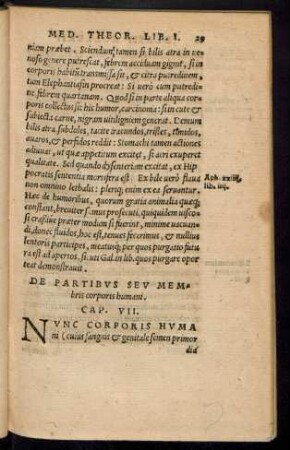 MED. THEOR. LIB. I. 29
niam præbet. Sciendum tamen si bilis atra in ue-
noso genere putrescat, febrem accidam gignit, si in
corporis habitũ transmissa sit, & citra putredinem,
tum Elephantiasin procreat: Si uerò cum putredi-
ne, febrim quartanam. Quod si in parte aliqua cor-
poris collectus sic his humor, carcinoma: si in cute &
subiecta carne, nigram uitiliginem generat. Demum
bilis atra subdoles, tacite iracundos, tristes, timidos,
auaros, & perfidos reddit: Stomachi tamen actiones
adiuuat, ut quæ appetitum excitet, si acri exuperet
qualitate. Sed quando dysenteriam excitat, ex Hip
pocratis sententia mortifera est: Ex bile uerò flaua
non omnino lethalis: pleriq; enim ex ea seruantur.
Aph. xxiiij.
lib. iiij.
Hæc de humoribus, quorum gratia animalia quæq;
constant, breuiter sumus prosecuti, quiquidem uisco-
si crassiue præter modum si fuerint, minime uacuan-
di, donec fluidos, hoc est, tenues fecerimus, & nullius
lentoris participes, meatusq; per quos purgatio futu
ra est ad apertos. si. uti Gal. in lib. quos purgare opor
teat demonstrauit.
DE PARTIBVS SEV MEM-
bris corporis humani.
CAP. VII.
NVNC CORPORIS HVMA
ni (cuius sanguis & genitale semen primor
dia